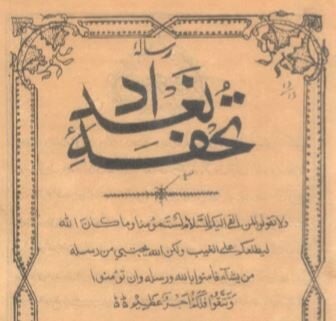 رسالہ
تحفہ بغداد
ولا تقولوا لمن القی الیکم السلام لست مؤمنا وما کان اللہ
لیطلعکم علی الغیب ولکن اللہ یجتبی من رسلہ
من یشاء فامنوا باللہ ورسلہ وان تؤمنوا
وتتقوا فلکم اجر عظیم